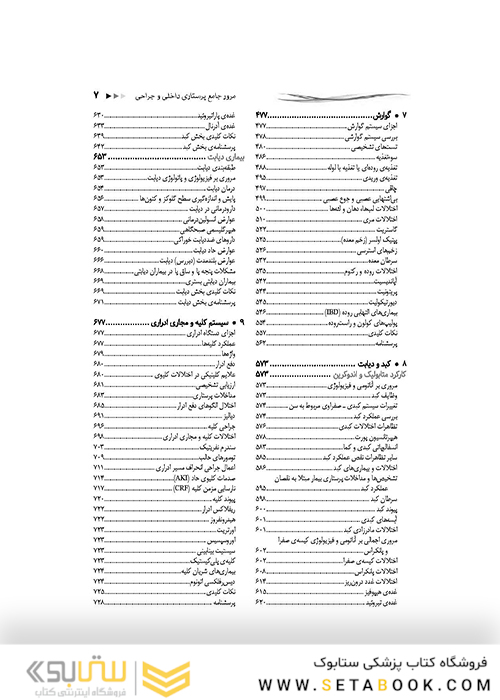 مرور جامع پرستاری داخلی و جراحی ۷
۷ ● گوارش ۴۷۷
اجزای سیستم گوارش ۴۷۷
بررسی سیستم گوارش ۴۷۸
تست‌های تشخیصی ۴۸۰
سوءتغذیه ۴۸۶
تغذیه‌ی روده‌ای یا تغذیه با لوله ۴۸۸
تغذیه‌ی وریدی ۴۹۵
چاقی ۴۹۷
بی‌اشتهایی عصبی و جوع عصبی ۴۹۹
اختلالات لب‌ها، دهان و لثه‌ها ۵۰۰
اختلالات مری ۵۱۰
گاستریت ۵۲۲
پپتیک اولسر (زخم معده) ۵۲۵
زخم‌های استرسی ۵۲۶
سرطان معده ۵۳۲
اختلالات روده و رکتوم ۵۳۵
آپاندیسیت ۵۴۲
پریتونیت ۵۴۴
دیورتیکولیت ۵۴۵
بیماری‌های التهابی روده (IBD) ۵۴۶
پولیپ‌های کولون و راست‌روده ۵۵۴
نکات کلیدی ۵۵۷
پرسشنامه ۵۶۲
۸ ● کبد و دیابت ۵۷۳
کارکرد متابولیک و اندوکرین ۵۷۳
مروری بر آناتومی و فیزیولوژی ۵۷۳
وظایف کبد ۵۷۳
تغییرات سیستم کبدی ـ صفراوی مربوط به سن ۵۷۴
بررسی عملکرد کبد ۵۷۴
تظاهرات اختلالات کبدی ۵۷۶
هیپرتانسیون پورت ۵۷۸
انسفالوپاتی کبدی و کما ۵۸۳
سایر تظاهرات نقص عملکرد کبد ۵۸۵
اختلالات و بیماری‌های کبد ۵۸۶
تشخیص‌ها و مداخلات پرستاری بیمار مبتلا به نقصان
عملکرد کبد ۵۹۵
سرطان کبد ۵۹۸
پیوند کبد ۶۰۰
آبسه‌های کبدی ۶۰۱
اختلالات مادرزادی کبد ۶۰۱
مروری اجمالی بر آناتومی و فیزیولوژی کیسه‌ی صفرا
و پانکراس ۶۰۲
اختلالات کیسه‌ی صفرا ۶۰۲
اختلالات پانکراس ۶۰۸
اختلالات غدد درون‌ریز ۶۱۴
غده‌ی هیپوفیز ۶۱۵
غده‌ی تیروئید ۶۲۰
غده‌ی پاراتیروئید ۶۳۰
غده‌ی آدرنال ۶۳۳
نکات کلیدی بخش کبد ۶۳۹
پرسشنامه‌ی بخش کبد ۶۴۲
بیماری دیابت ۶۵۳
طبقه‌بندی دیابت ۶۵۳
مروری بر فیزیولوژی و پاتولوژی دیابت ۶۵۳
درمان دیابت ۶۵۴
پایش و اندازه‌گیری سطح گلوکز و کتون‌ها ۶۵۶
دارودرمانی در دیابت ۶۵۷
عوارض انسولین‌درمانی ۶۵۸
هیپرگلیسمی صبحگاهی ۶۵۹
داروهای ضددیابت خوراکی ۶۵۹
عوارض حاد دیابت ۶۶۰
عوارض بلندمدت (دیررس) دیابت ۶۶۶
مشکلات پنجه پا و ساق پا در بیماران دیابتی ۶۶۸
بیماران دیابتی بستری ۶۶۹
نکات کلیدی بخش دیابت ۶۶۹
پرسشنامه‌ی بخش دیابت ۶۷۱
۹ ● سیستم کلیه و مجاری ادراری ۶۷۷
اجزای دستگاه ادراری ۶۷۷
عملکرد کلیه‌ها ۶۷۷
واژه‌ها ۶۷۹
دفع ادرار ۶۸۰
علایم کلینیکی در اختلالات کلیوی ۶۸۰
ارزیابی تشخیصی ۶۸۱
مداخلات پرستاری ۶۸۳
اختلال الگوهای دفع ادرار ۶۸۵
دیالیز ۶۹۱
جراحی کلیه ۶۹۶
اختلالات کلیه و مجاری ادراری ۶۹۸
سندرم نفریتیک ۷۰۳
تومورهای حالب ۷۰۹
اعمال جراحی انحراف مسیر ادراری ۷۱۱
صدمات کلیوی حاد (AKI) ۷۱۴
نارسایی مزمن کلیه (CRF) ۷۱۷
پیوند کلیه ۷۲۰
ریفلاکس ادرار ۷۲۲
هیدرونفروز ۷۲۲
اورتریت ۷۲۳
اوروسپسیس ۷۲۳
سیستیت بینابینی ۷۲۳
کلیه‌ی پلی‌کیستیک ۷۲۳
بیماری‌های شریان کلیه ۷۲۴
دیس‌رفلکسی اتونوم ۷۲۴
نکات کلیدی ۷۲۵
پرسشنامه ۷۲۸
فروشگاه کتاب پزشکی ستابوک
WWW.SETABOOK.COM
ستابوک
فروشگاه اینترنتی کتاب